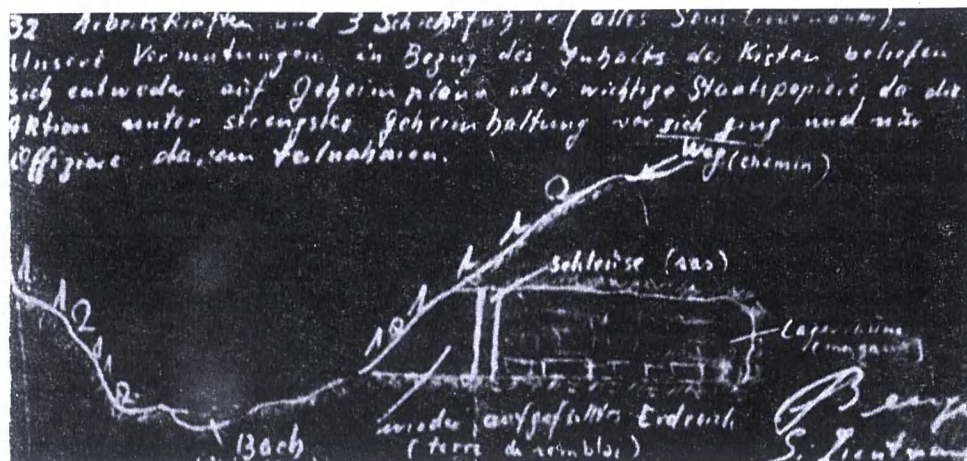 32 Arbeitskräften und 3 Schichtführer (alles Sous-Lieutnants).
Unsere Vermutungen in Bezug des Inhalts der Kisten beliefen
sich entweder auf Geheimpläne oder wichtige Staatspapiere, da die
Aktion unter strengster Geheimhaltung vor sich ging und nur
Offiziere daran teilnahmen.
Weg (chemin)
Schleuse (sas)
wieder aufgefülltes Erdreich
(terre de remblai)
Bach
S. Lieutnant